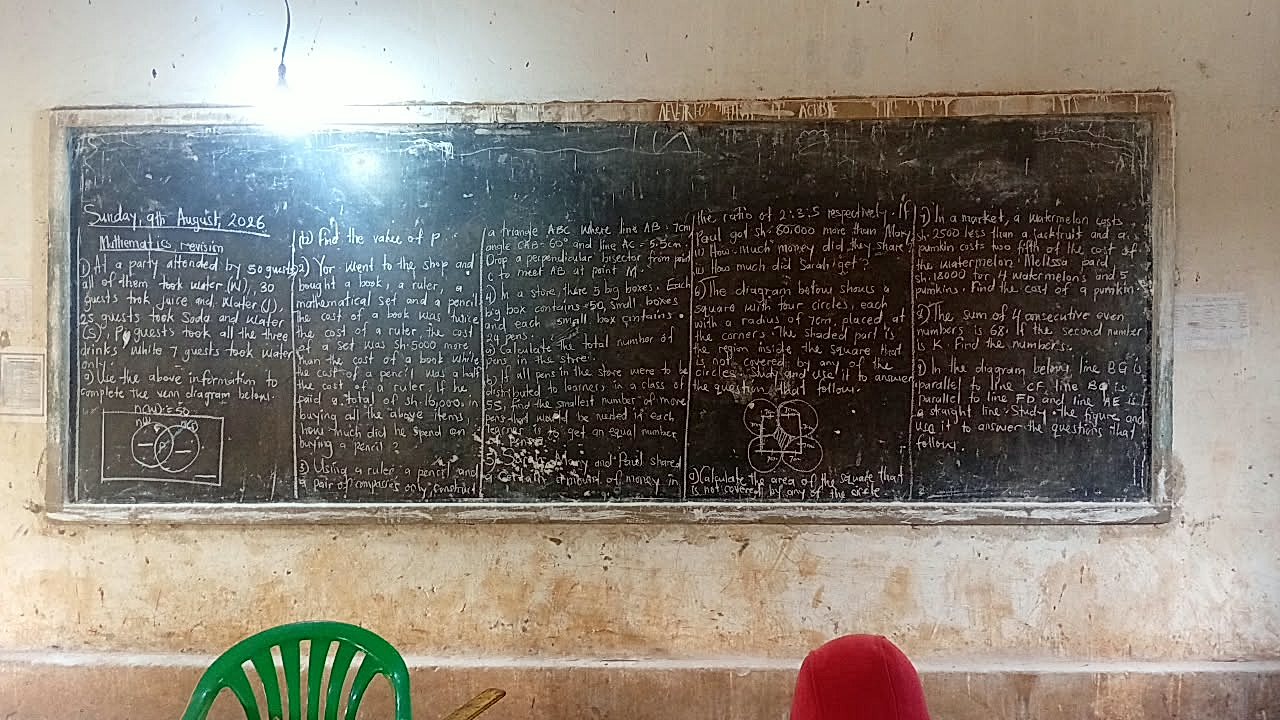 Sunday, 9th August, 2026
Mathematics revision
1) At a party attended by 50 guests
all of them took water (W), 30
guests took juice and Water (J),
25 guests took Soda and Water
(S), P guests took all the three
drinks white 7 guests took water
only.
a) Use the above information to
complete the venn diagram below.
n(W) = 50
(b) Find the value of p.
2) Yor went to the shop and
bought a book, a ruler, a
mathematical set and a pencil
the cost of a book was twice
the cost of a ruler, the cost
of a set was sh.5000 more
than the cost of a book while
the cost of a pencil was a half
the cost of a ruler. If he
paid a total of sh.16,000 in
buying all the above items,
how much did he spend on
buying a pencil?
3) Using a ruler, a pencil and
a pair of compasses only, construct
a triangle ABC where line AB = 7cm
angle CAB = 60° and line AC = 5.5cm.
Drop a perpendicular bisector from point
C to meet AB at point M.
4) In a store, there 5 big boxes. Each
big box contains 50 small boxes
and each small box contains
24 pens.
a) Calculate the total number of
pens in the store.
b) If all pens in the store were to be
distributed to learners in a class of
55, find the smallest number of more
pens that would be needed if each
learner is to get an equal number
Mary and Paul shared
a certain amount of money in
the ratio of 2:3:5 respectively. If
Paul got sh. 60,000 more than Mary
i) How much money did they share?
ii) How much did Sarah get?
6) The diagram below shows a
square with four circles, each
with a radius of 7cm, placed at
the corners. The shaded part is
the region inside the square that
is not covered by any of the
circles. Study and use it to answer
the question that follow.
7cm 7cm
a) Calculate the area of the square that
is not covered by any of the circle
7) In a market, a watermelon costs
sh. 2500 less than a jackfruit and a
pumkin costs two fifth of the cost of
the watermelon. Melissa paid
sh. 18000 for 4 watermelons and 5
pumkins. Find the cost of a pumkin.
8) The sum of 4 consecutive even
numbers is 68. If the second number
is K. Find the numbers.
9) In the diagram below, line BG is
parallel to line CF, line BG is
parallel to line FD and line AE is
a straight line. Study the figure and
use it to answer the questions that
follow.